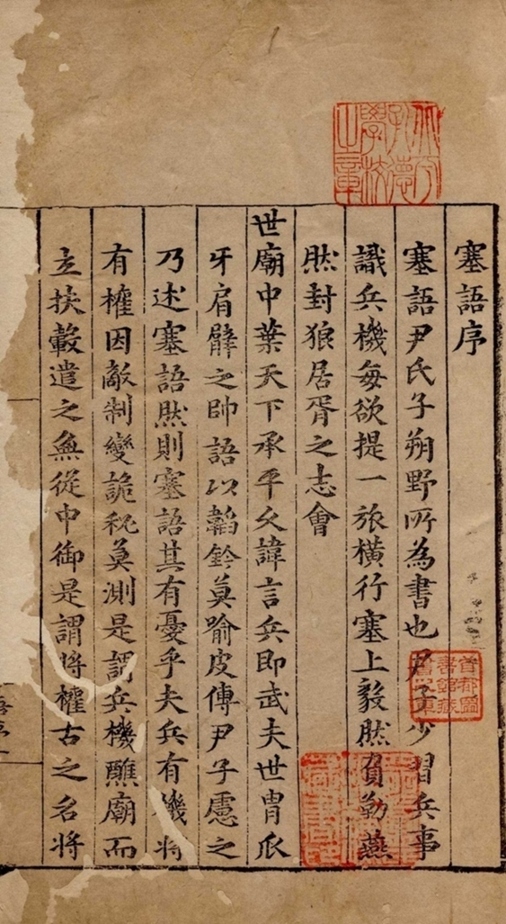 北平孔德學校之章
塞語序
塞語尹氏子朔野所為書也尹子少習兵事
識兵機每欲提一旅橫行塞上毅然負勒燕
然封狼居胥之志會
世廟中葉天下承平久諱言兵即武夫世冑爪
牙肩臂之帥語以韜鈐莫喻皮傳尹子慮之
乃述塞語然則塞語其有憂乎夫兵有機將
有權因敵制變詭秘莫測是謂兵機醮廟而
立扶轂遣之無從中御是謂將權古之名將
首都圖書館藏書之章